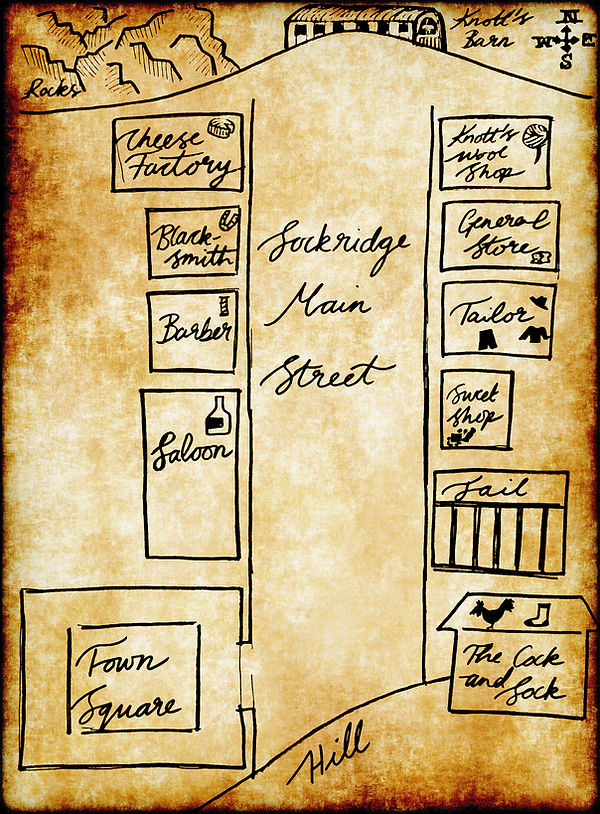 Knott's
Barn
N
W E
S
Rocks
Cheese
Factory
Knott's
Wool
Shop
Black-
smith
General
Store
Sockridge
Main
Street
Barber
Tailor
Sweet
Shop
Saloon
Jail
Town
Square
The Cock
and Sock
Hill